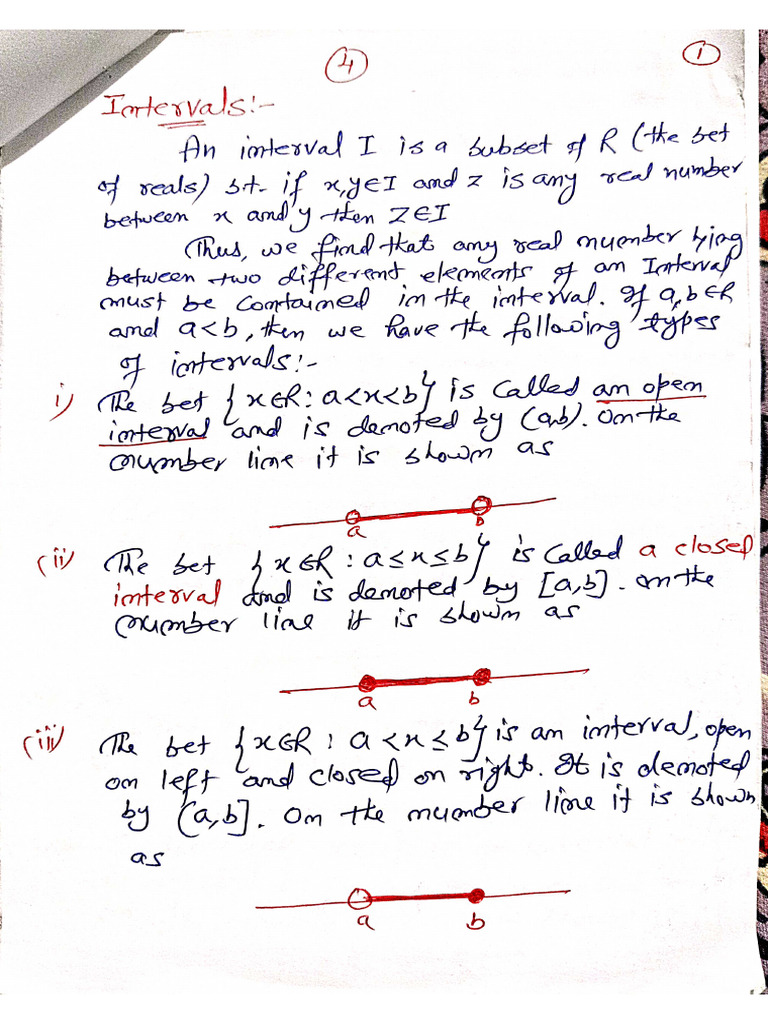 4
1
Intervals:-
An interval I is a subset of R (the set
of reals) s.t. if x,y∈I and z is any real number
between x and y then Z∈I
Thus, we find that any real number lying
between two different elements of an Interval
must be contained in the interval. If a,b∈R
and a<b, then we have the following types
of intervals:-
i) The set {x∈R: a<x<b} is called an open
interval and is denoted by (a,b). On the
number line it is shown as
a b
(ii) The set {x∈R : a≤x≤b} is called a closed
interval and is denoted by [a,b]. On the
number line it is shown as
a b
(iii) The set {x∈R : a<x≤b} is an interval, open
on left and closed on right. It is denoted
by (a,b]. On the number line it is shown
as
a b